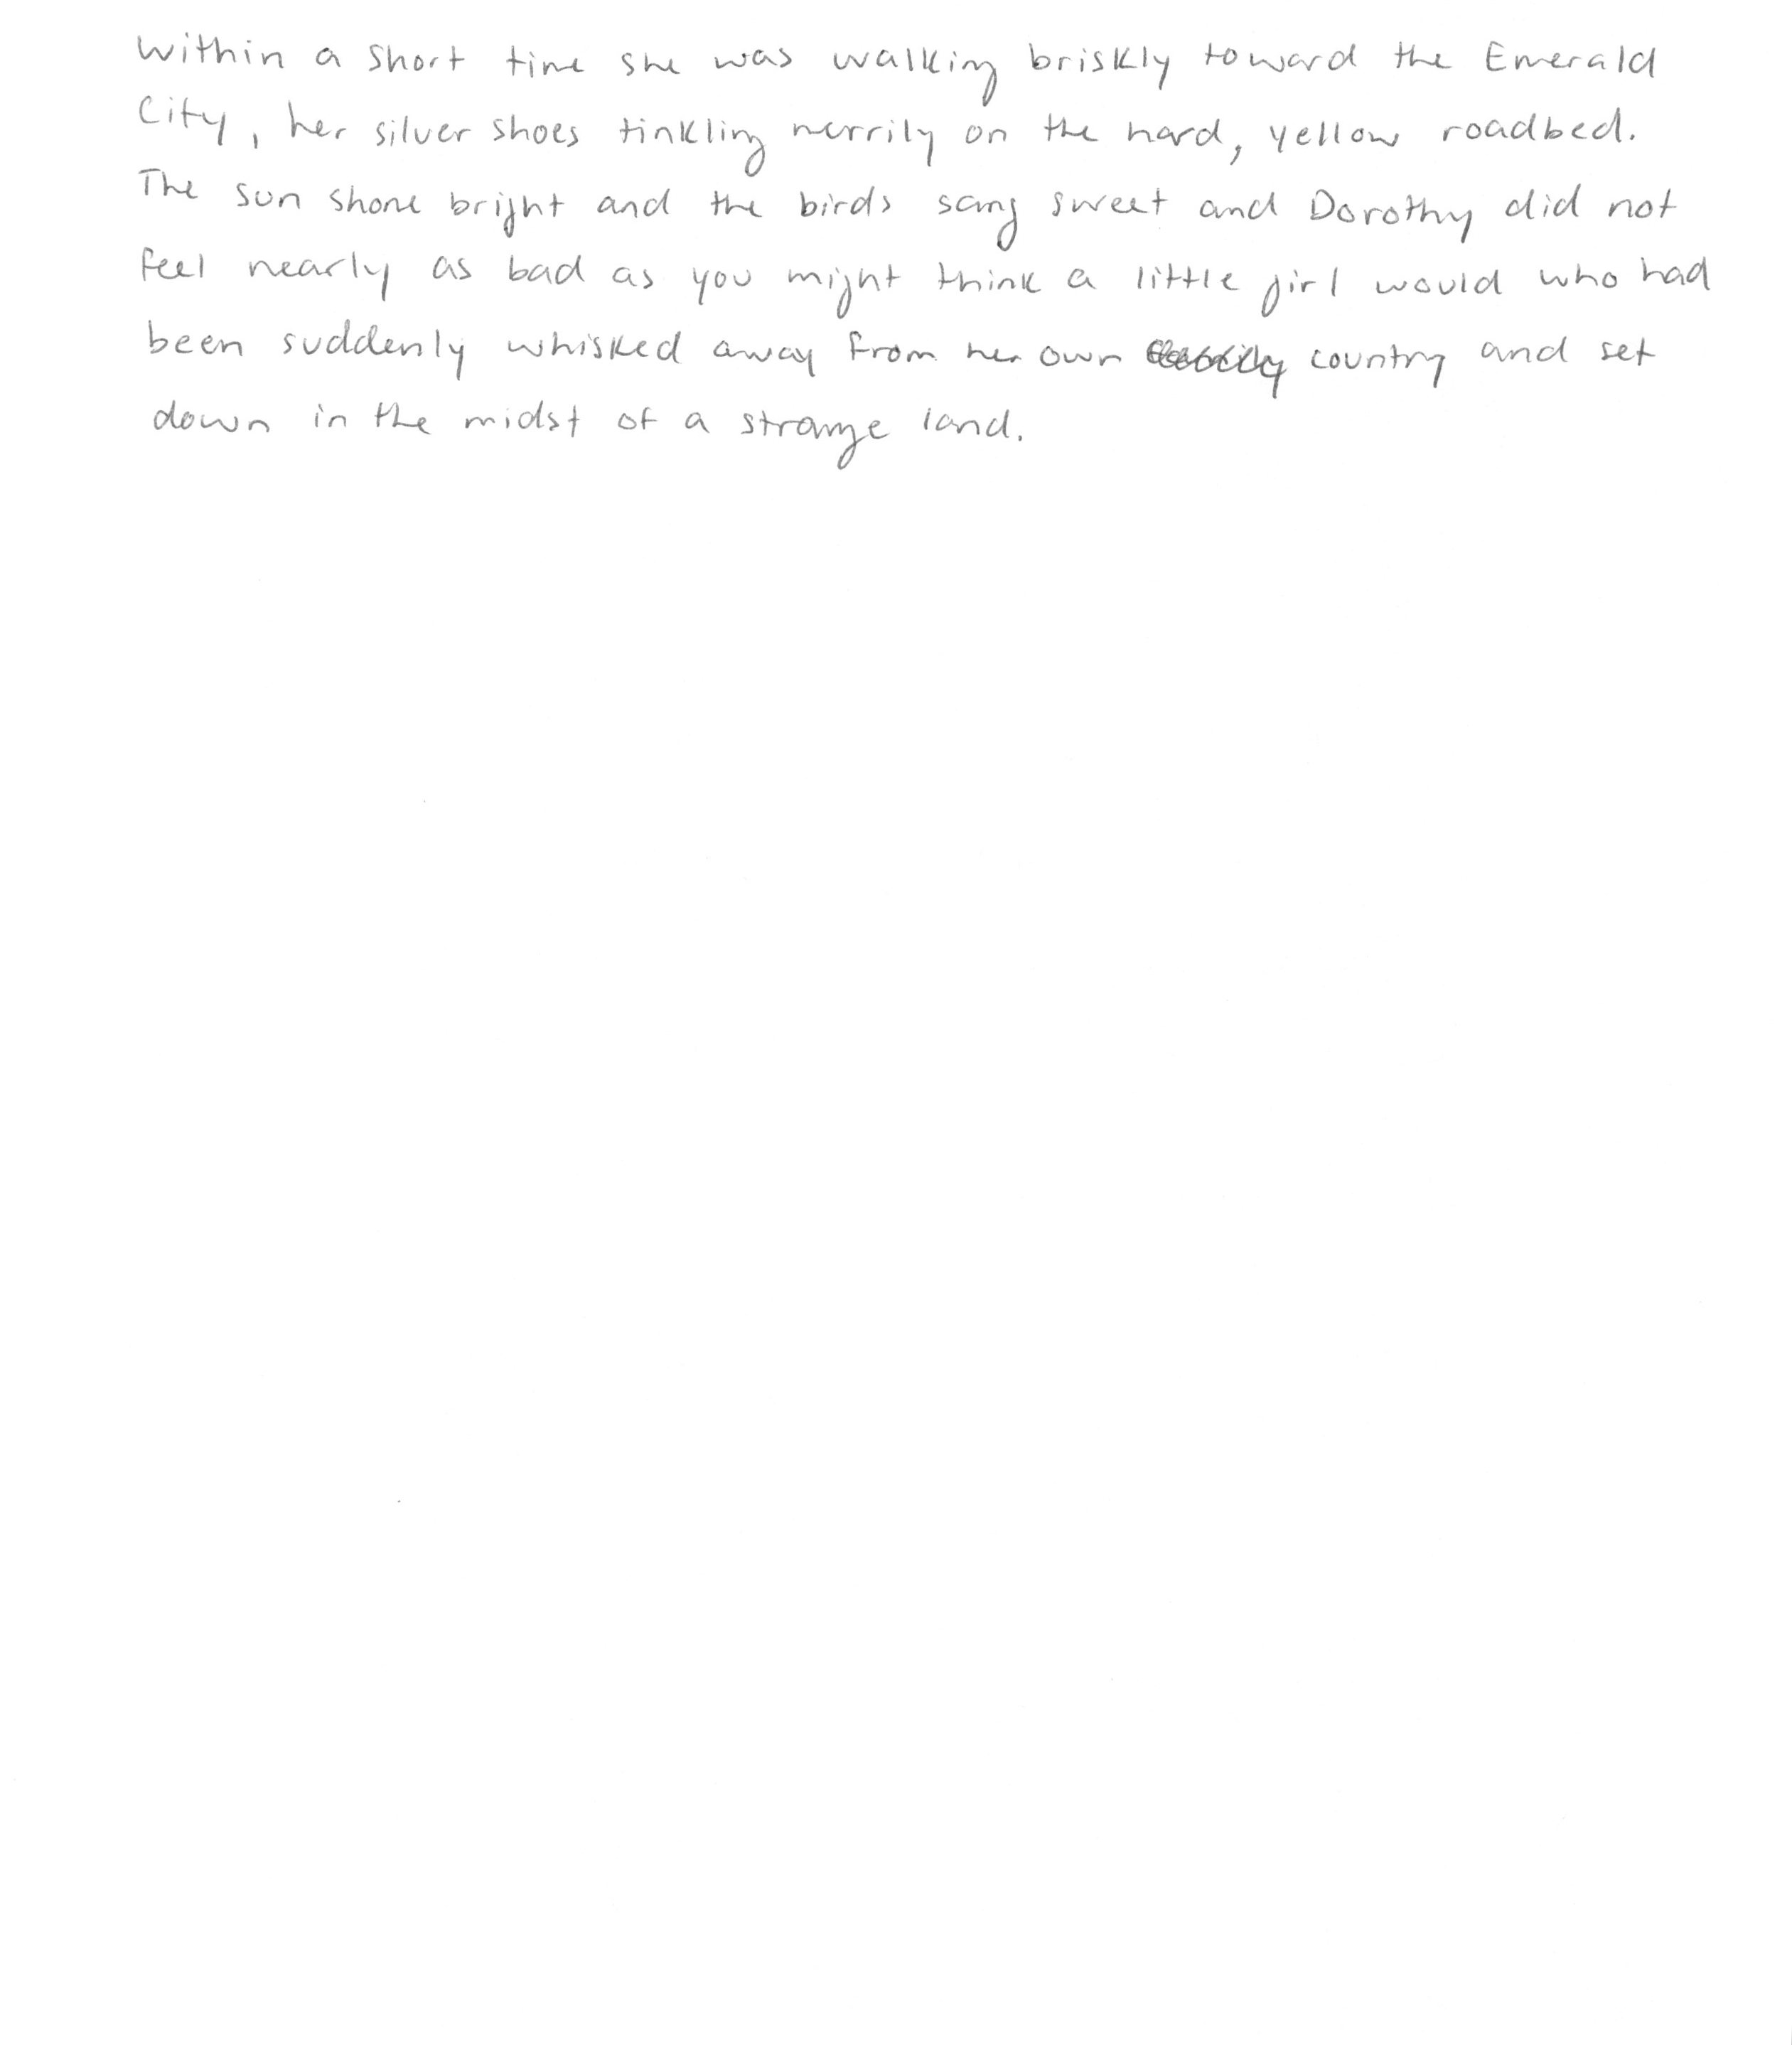 Within a short time she was walking briskly toward the Emerald
City, her silver shoes tinkling merrily on the hard, yellow roadbed.
The sun shone bright and the birds sang sweet and Dorothy did not
feel nearly as bad as you might think a little girl would who had
been suddenly whisked away from her own country and set
down in the midst of a strange land.